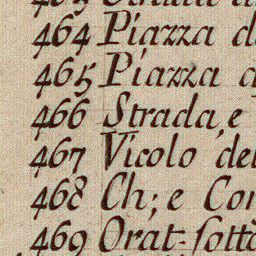 464 Piazza
465 Piazza
466 Strada, e
467 Vicolo
468 Ch; e
469 Orat: sotto